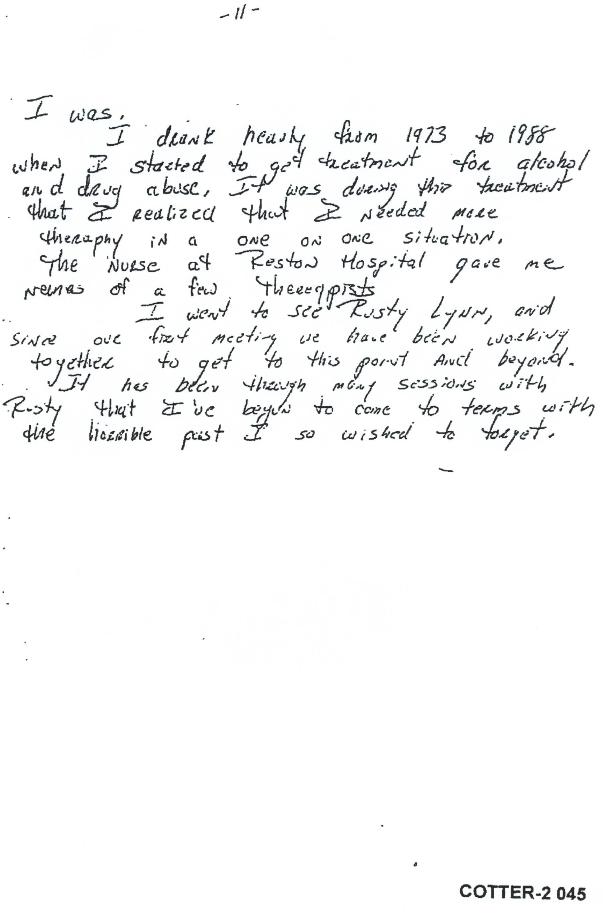 -11-
I was.
I drank heavly from 1973 to 1988
when I started to get treatment for alcohol
and drug abuse, It was during this treatment
that I realized that I needed more
theraphy in a one on one situation.
The Nurse at Reston Hospital gave me
names of a few
I went to see Rusty Lynn, and
since our first meeting we have been working
together to get to this point And beyond.
It has been through many sessions with
Rusty that I've begun to come to terms with
the horrible past I so wished to forget.
COTTER-2 045